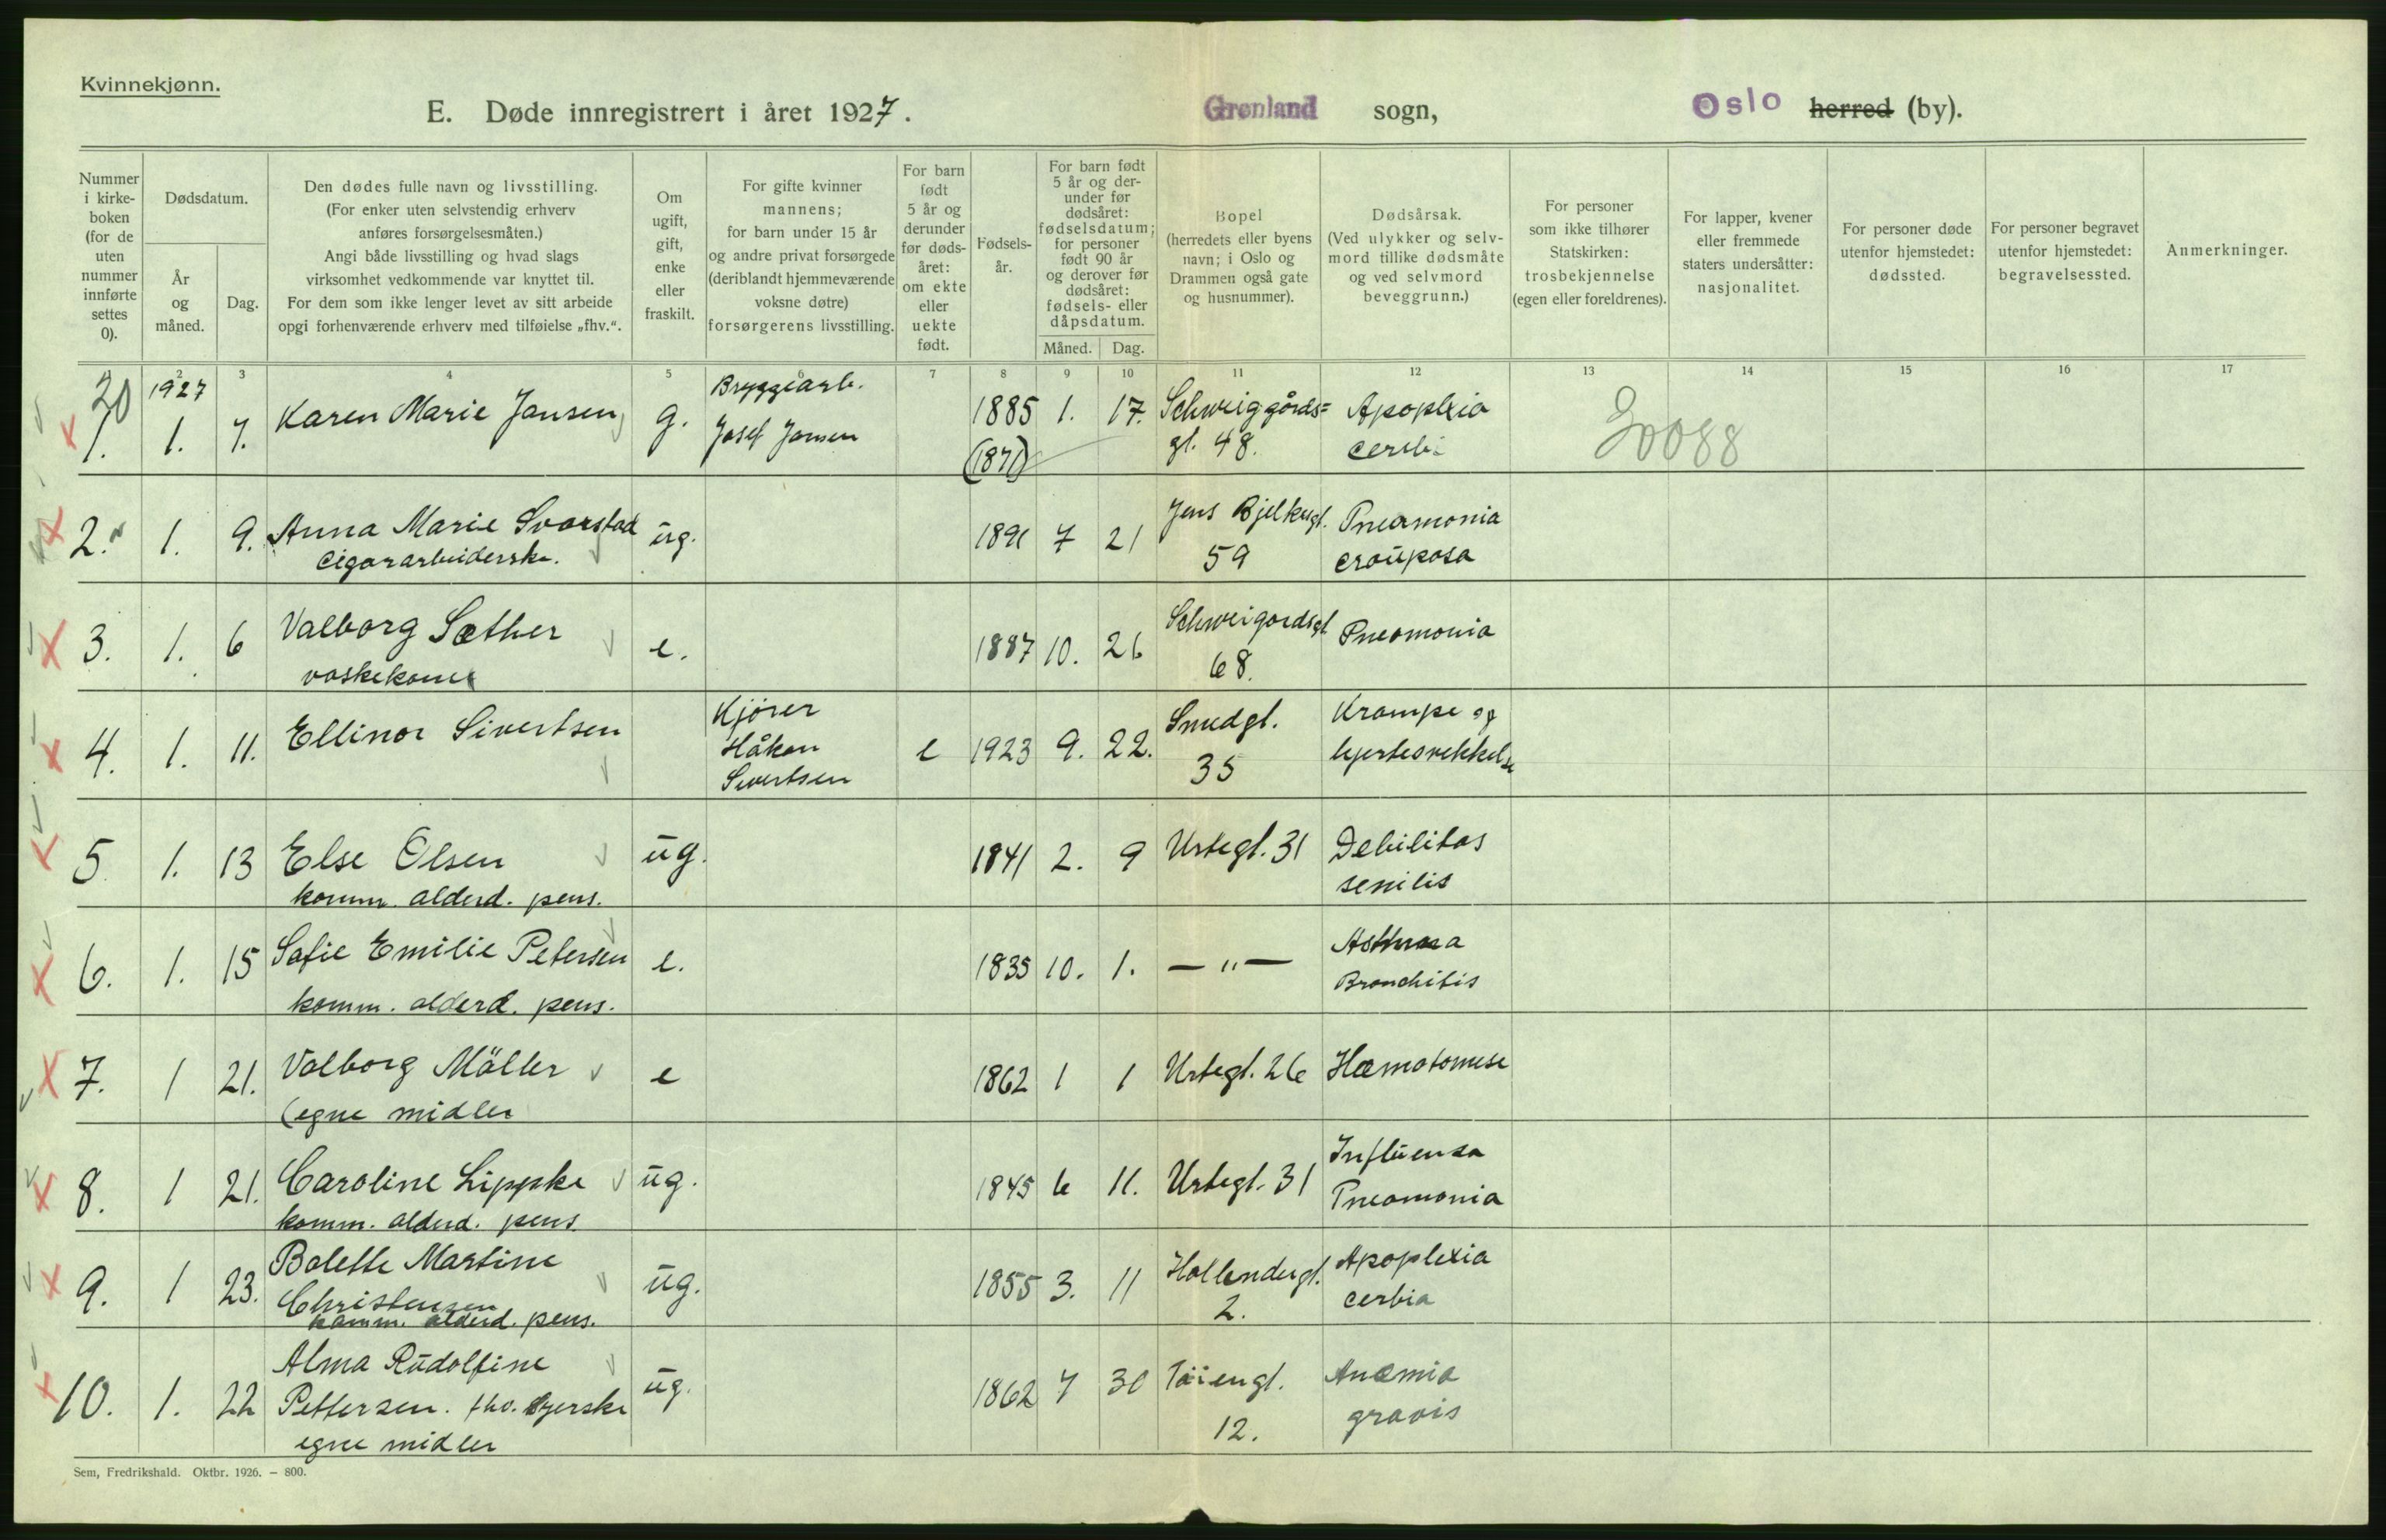 Kvinnekjønn.
E. Døde innregistrert i året 1927. Grønland sogn, Oslo herred (by).
Nummer i kirke-boken (for de uten nummer innførte settes 0).
Dødsdatum.
År og måned.
Dag.
Den dødes fulle navn og livsstilling.
(For enker uten selvstendig erhverv
anføres forsørgelsesmåten.)
Angi både livsstilling og hvad slags
virksomhet vedkommende var knyttet til.
For dem som ikke lenger levet av sitt arbeide
opgi forhenværende erhverv med tilføielse „fhv.“.
Om
ugift,
gift,
enke
eller
fraskilt.
For gifte kvinner
mannens;
for barn under 15 år
og andre privat forsørgede
(deriblandt hjemmeværende
voksne døtre)
forsørgerens livsstilling.
For barn
født
5 år og
derunder
før døds-
året:
om ekte
eller
uekte
født.
Fødsels-
år.
For barn født
5 år og der-
under før
dødsåret:
fødselsdatum;
for personer
født 90 år
og derover før
dødsåret:
fødsels- eller
dåpsdatum.
Måned. Dag.
Bopel
(herredets eller byens
navn; i Oslo og
Drammen også gate
og husnummer).
Dødsårsak.
(Ved ulykker og selv-
mord tillike dødsmåte
og ved selvmord
beveggrunn.)
For personer
som ikke tilhører
Statskirken:
trosbekjennelse
(egen eller foreldrenes).
For lapper, kvener
eller fremmede
staters undersåtter:
nasjonalitet.
For personer døde
utenfor hjemstedet:
dødssted.
For personer begravet
utenfor hjemstedet:
begravelsessted.
Anmerkninger.
2 3 4 5 6 7 8 9 10 11 12 13 14 15 16 17
20 1927 Bryggearb.
1. 1. 7. Karen Marie Jansen g. Josef Jansen 1885 1. 17. Schweiggårds= Apoplexia
(1871) gt. 48. cerebi
2. 1. 9. Anna Marie Svarstad ug. 1891 7 21 Jens Bjelkesgt. Pneumonia
Cigararbeiderske. 59 crouposa
3. 1. 6 Valborg Sæther e. 1887 10. 26 Schweigardsgt Pneomonia
vaskekone 68.
4. 1. 11. Ellinor Sivertsen Kjörer e 1923 9. 22. Smedgt. Krampe og
Håkon 35 hjertesvekkelse
Sivertsen
5. 1. 13 Else Olsen ug. 1841 2. 9 Urtegt. 31 Debilitas
komm. alderd. pens. senilis
6. 1. 15 Sofie Emilie Petersen e. 1835 10. 1. — " — Asthma
komm. alderd. pens. Bronchitis
7. 1 21. Valborg Möller e 1862 1 1 Urtegt. 26 Hæmatomese
(egne midler
8. 1 21. Caroline Lippke ug. 1845 6 11. Urtegt. 31 Influensa
komm. alderd. pens. Pneomonia
9. 1 23. Bolette Martine ug. 1855 3. 11 Hollendergt. Apoplexia
Christensen 2. cerbia
komm. alderd. pens.
10. 1. 22 Alma Rudolfine ug. 1862 7 30 Töiengt. Anæmia
Pettersen. fhv. syerske 12. gravis
egne midler
Sem, Fredrikshald. Oktbr. 1926. – 800.